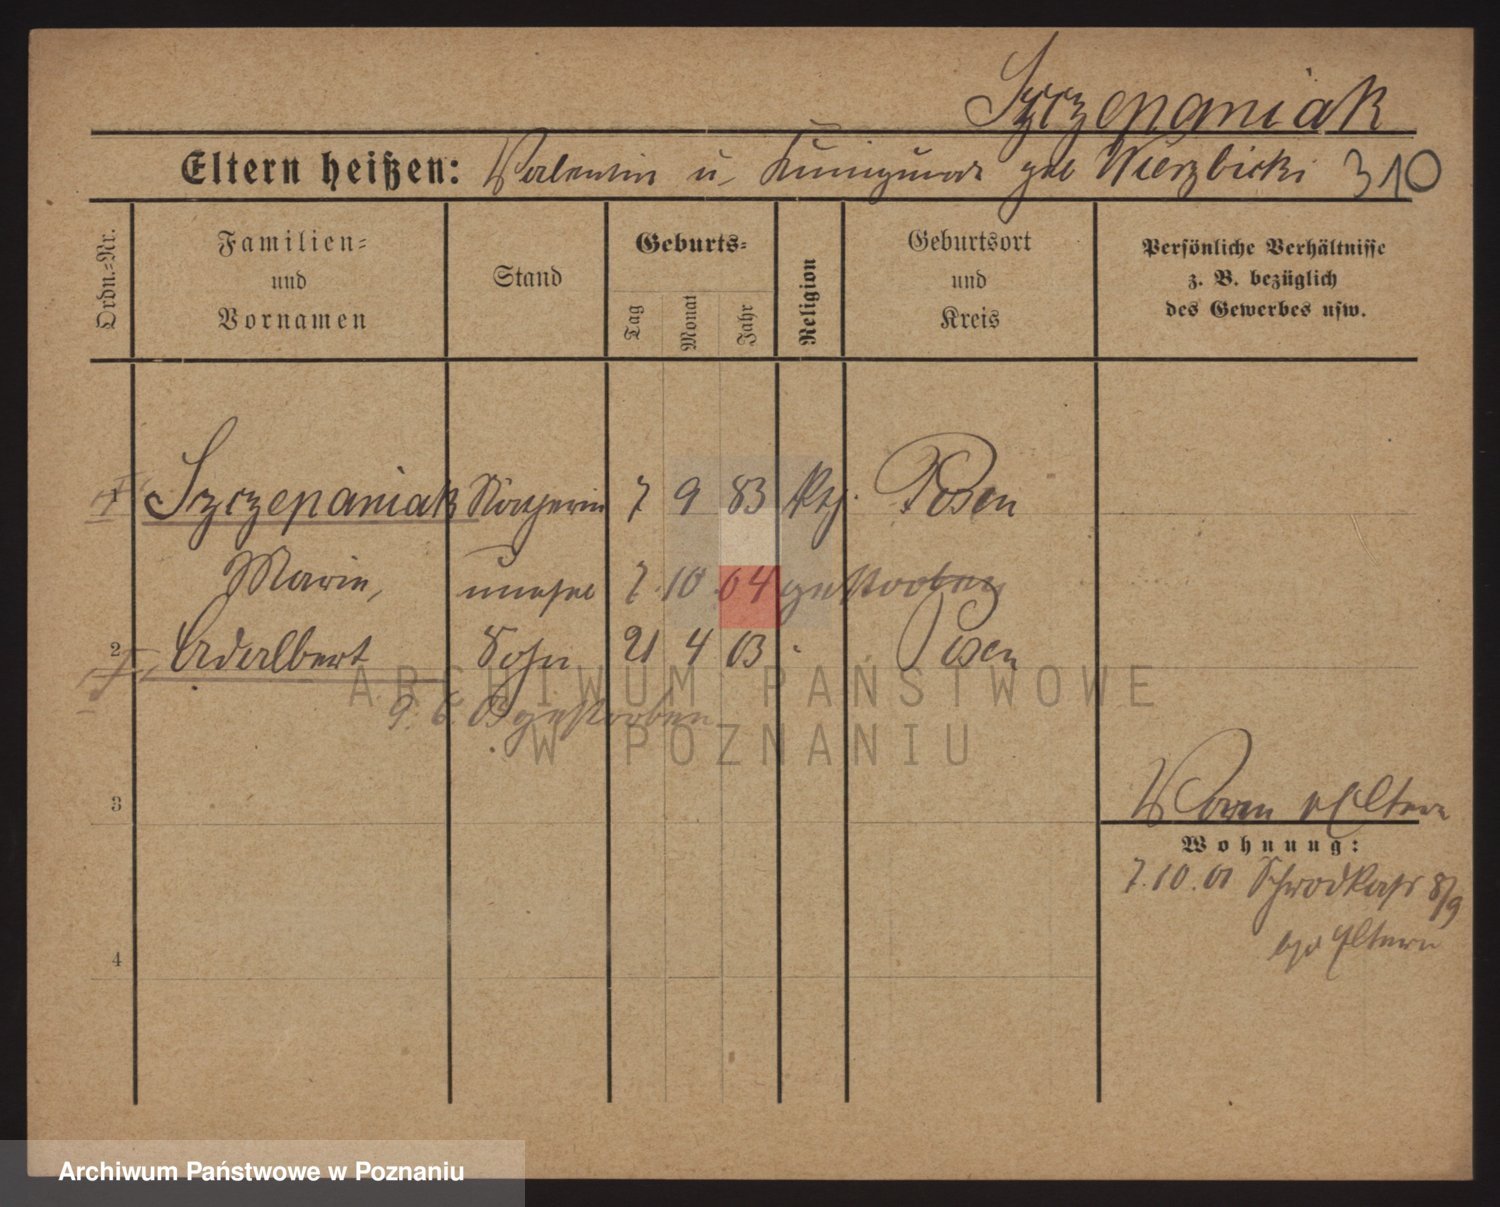 Szczepaniak
Eltern heißen: Valentin u. Kunigunde geb Wierzbicki 310
Ordn.-Nr.
Familien-
und
Vornamen
Stand
Geburts-
Tag
Monat
Jahr
Religion
Geburtsort
und
Kreis
Persönliche Verhältnisse
z. B. bezüglich
des Gewerbes usw.
1 Szczepaniak 7 9 83 Posen
Marie, unehel 7. 10 04 gestorben
2 Adalbert Sohn 21 4 03 Posen
9. 6 03 gestorben
ARCHIWUM PAŃSTWOWE
W POZNANIU
3
Eltern
Wohnung:
7.10.01 8/9
Eltern
4
Archiwum Państwowe w Poznaniu